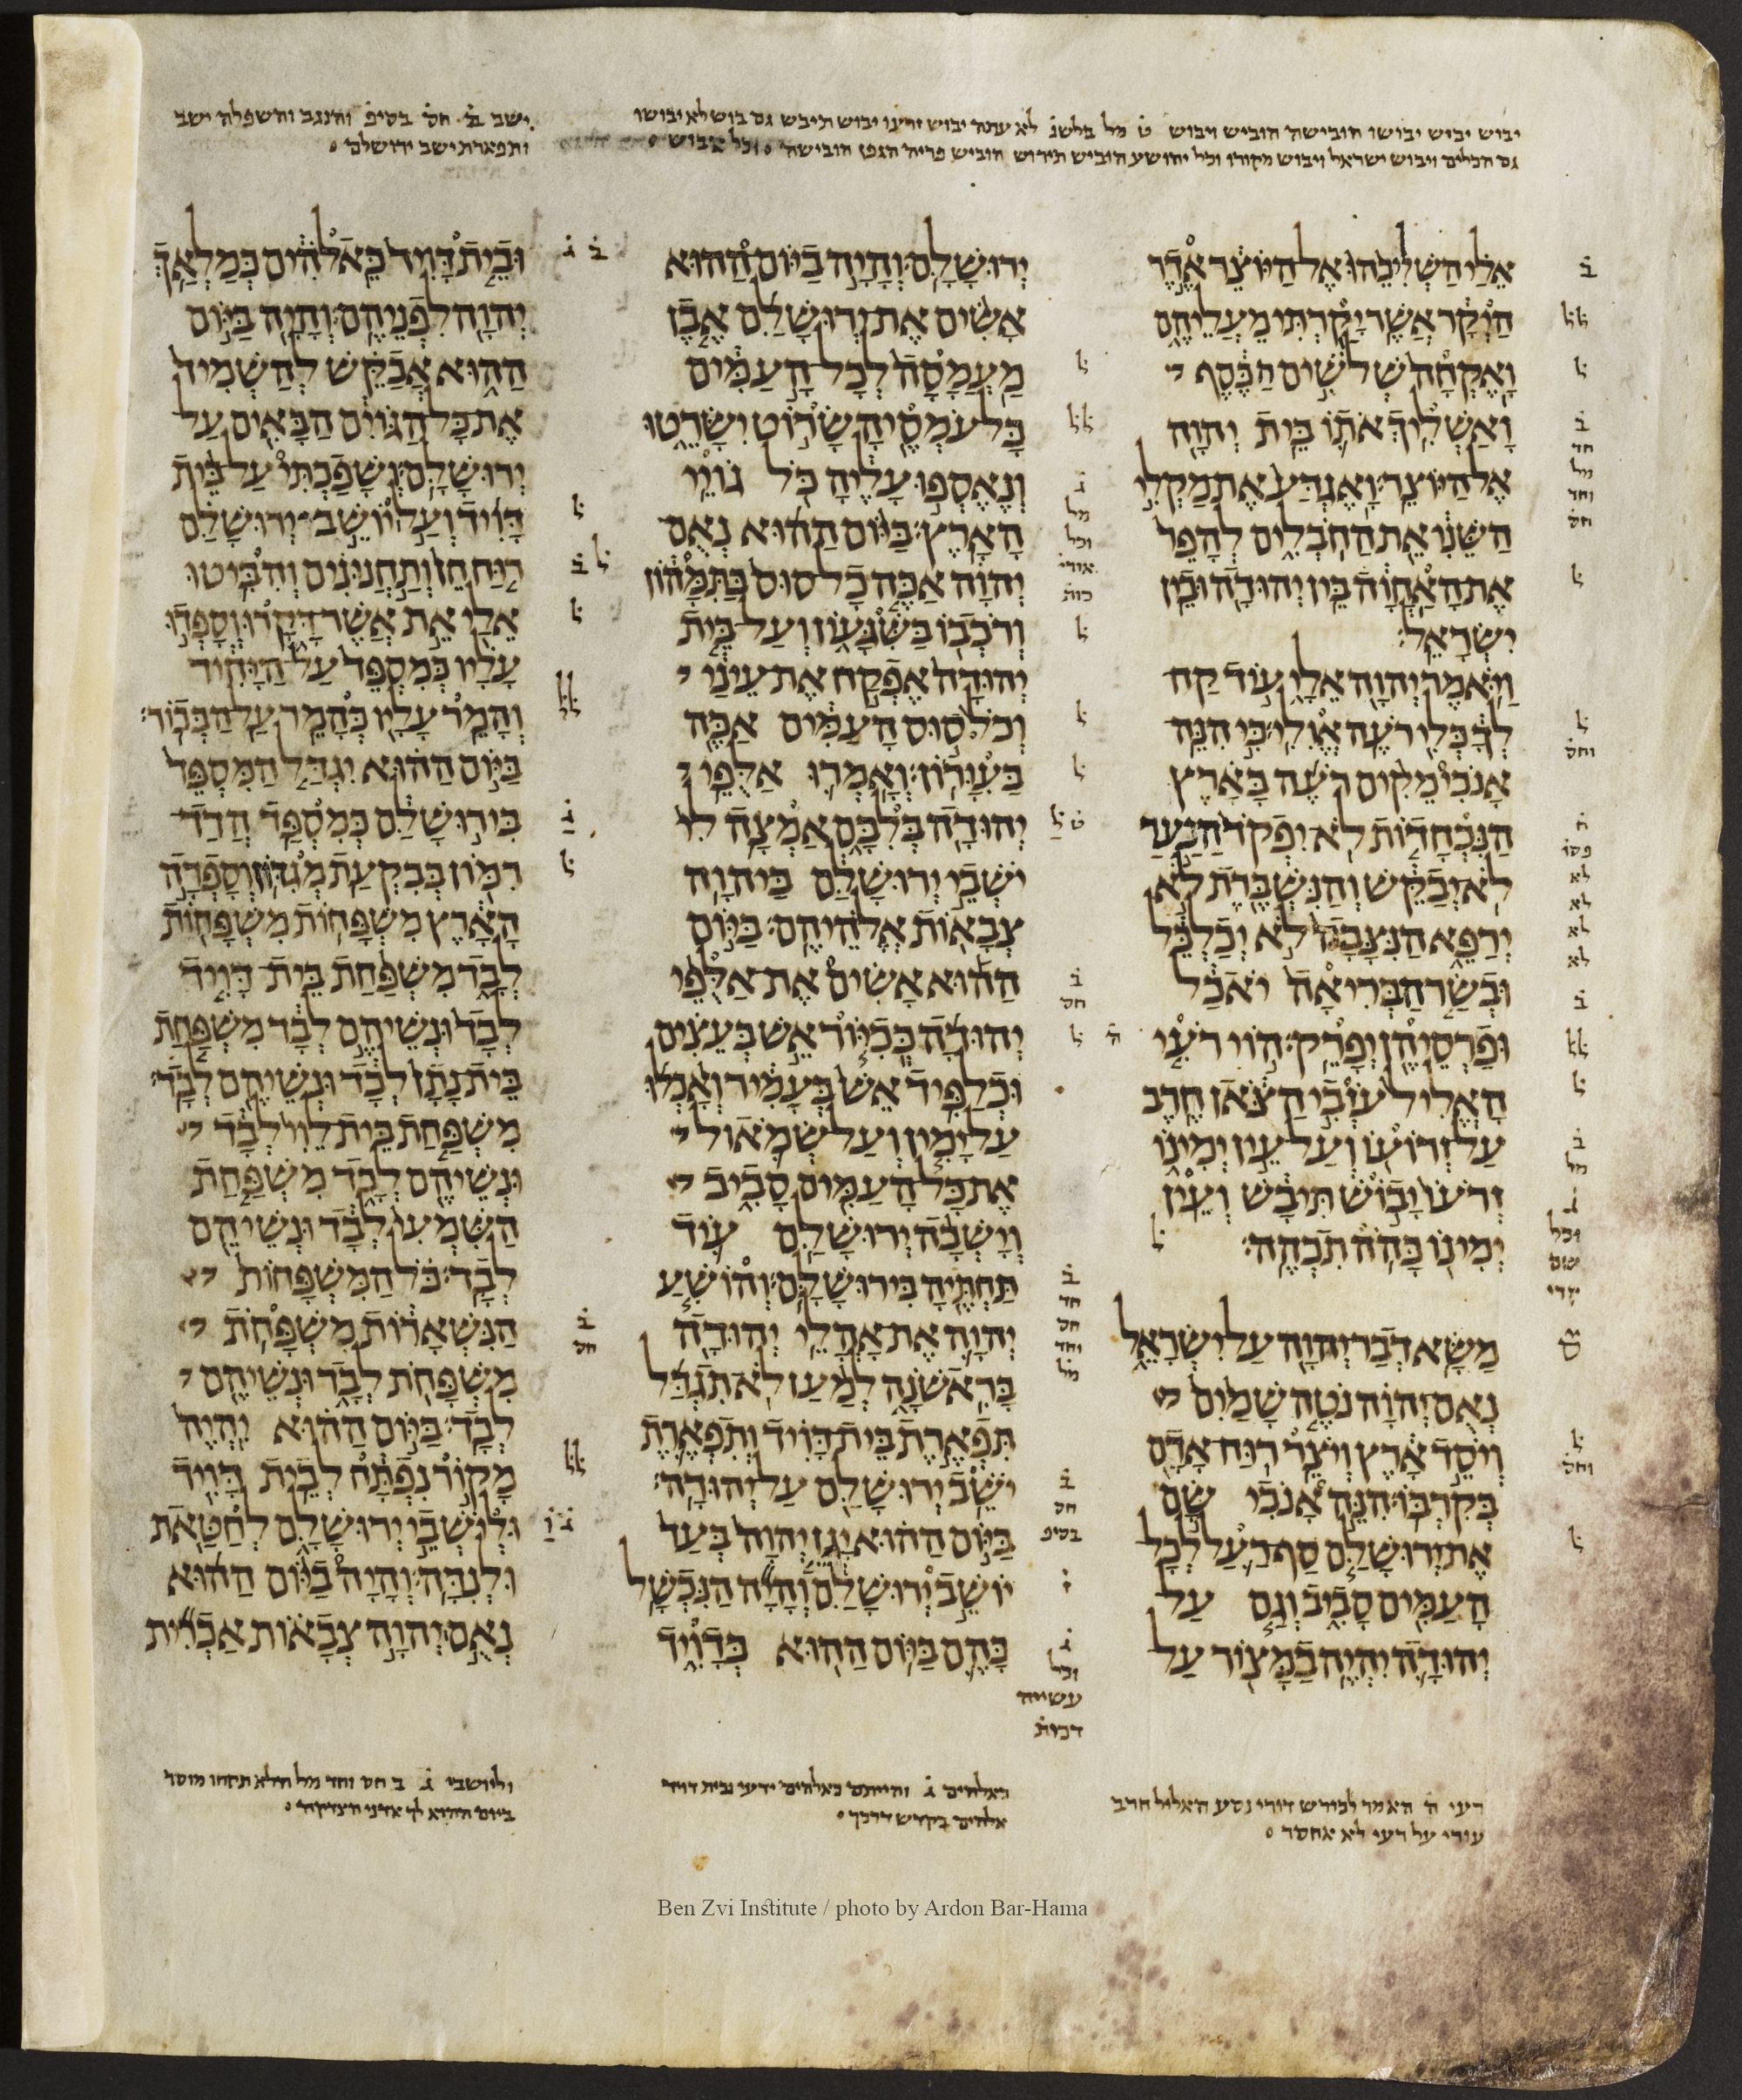 יבוש יביש יבושו הובישה הוביש ויבוש ט מל בלשנ לא עתה יבוש זרעו יבוש תיבש גם בוש לא יבושו
גם הכלים ויבוש ישראל ויבוש מקורו וכל יהושע הוביש תירוש הוביש פריה הגפן הובישה וכל אבוש
ישב ב חס בסיפ והנגב והשפלה ישב
ותפארת ישב ירושלם
אלי השליכהו אל היוצר אדר
היקר אשר יקרתי מעליהם
ואקחה שלשים הכסף
ואשליך אתו בית יהוה
אל היוצר׃ ואגדע את מקלי
השני את החבלים להפר
את האחוה בין יהודה ובין
ישראל׃
ויאמר יהוה אלי עוד קח
לך כלי רעה אולי׃ כי הנה
אנכי מקים רעה בארץ
הנכחדות לא יפקד הנער
לא יבקש והנשברת לא
ירפא הנצבה לא יכלכל
ובשר הבריאה יאכל
ופרסיהן יפרק׃ הוי רעי
האליל עזבי הצאן חרב
על זרועו ועל עין ימינו
זרעו יבוש תיבש ועין
ימינו כהה תכהה׃
משא דבר יהוה על ישראל
נאם יהוה נטה שמים
ויסד ארץ ויצר רוח אדם
בקרבו׃ הנה אנכי שם
את ירושלם סף רעל לכל
העמים סביב וגם על
יהודה יהיה במצור על
ירושלם׃ והיה ביום ההוא
אשים את ירושלם אבן
מעמסה לכל העמים
כל עמסיה שרוט ישרטו
ונאספו עליה כל גויי
הארץ׃ ביום ההוא נאם
יהוה אכה כל סוס בתמהון
ורכבו בשגעון ועל בית
יהודה אפקח את עיני
וכל סוס העמים אכה
בעורון׃ ואמרו אלפי
יהודה בלבם אמצה לי
ישבי ירושלם ביהוה
צבאות אלהיהם׃ ביום
ההוא אשים את אלפי
יהודה ככיור אש בעצים
וכלפיד אש בעמיר ואכלו
על ימין ועל שמאול
את כל העמים סביב
וישבה ירושלם עוד
תחתיה בירושלם׃ והושע
יהוה את אהלי יהודה
בראשנה למען לא תגדל
תפארת בית דויד ותפארת
ישב ירושלם על יהודה׃
ביום ההוא יגן יהוה בעד
יושב ירושלם והיה הנכשל
בהם ביום ההוא כדויד
ובית דויד כאלהים כמלאך
יהוה לפניהם׃ והיה ביום
ההוא אבקש להשמיד
את כל הגוים הבאים על
ירושלם׃ ושפכתי על בית
דויד ועל יושב ירושלם
רוח חן ותחנונים והביטו
אלי את אשר דקרו וספדו
עליו כמספד על היחיד
והמר עליו כהמר על הבכור׃
ביום ההוא יגדל המספד
בירושלם כמספד הדד
רמון בבקעת מגדון׃ וספדה
הארץ משפחות משפחות
לבד משפחת בית דויד
לבד ונשיהם לבד משפחת
בית נתן לבד ונשיהם לבד׃
משפחת בית לוי לבד
ונשיהם לבד משפחת
השמעי לבד ונשיהם
לבד׃ כל המשפחות
הנשארות משפחת
משפחת לבד ונשיהם
לבד׃ ביום ההוא יהיה
מקור נפתח לבית דויד
ולישבי ירושלם לחטאת
ולנדה׃ והיה ביום ההוא
נאם יהוה צבאות אכרית
רעי ה האמר לכורש דורי נסע האליל חרב
עורי על רעי לא אחסר
כאלהים ג והייתם כאלהים ידעי ובית דויד
אלהים בקדש דרכך
וליושבי ג ב חס וחד מל
ביום ההוא לך אדני הצדקה
Ben Zvi Institute / photo by Ardon Bar-Hama